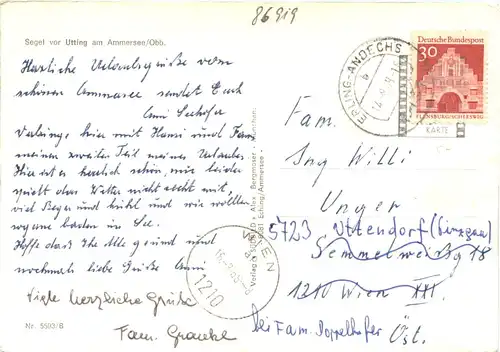 86919
Segel vor Utting am Ammersee/Obb.
Herzliche Urlaubsgrüße vom
schönen Ammersee sendet Euch
Anni Seehofer
Verbringe hier mit Hansi und Fam.
meinen zweiten Teil meines Urlaubes.
Hier ist es herrlich schön, nur leider
spielt das Wetter nicht recht mit,
viel Regen und kühl und wir wollten
so gerne baden im See.
Hoffe dass Ihr Alle gesund und
nochmals liebe Grüße Anni
Viele herzliche Grüße
Fam.
Nr. 5503/B
Verlag
Eching/Ammersee
HERRSCHING-ANDECHS
b
Deutsche Bundespost
30
FLENSBURG/SCHLESWIG
KARTE
WIEN
1210
Fam.
Ing Willi
Unger
5723 Uttendorf (Pinzgau)
Semmelweisg 18
1210 Wien XXI.
bei Fam. Doppelhofer
Öst.